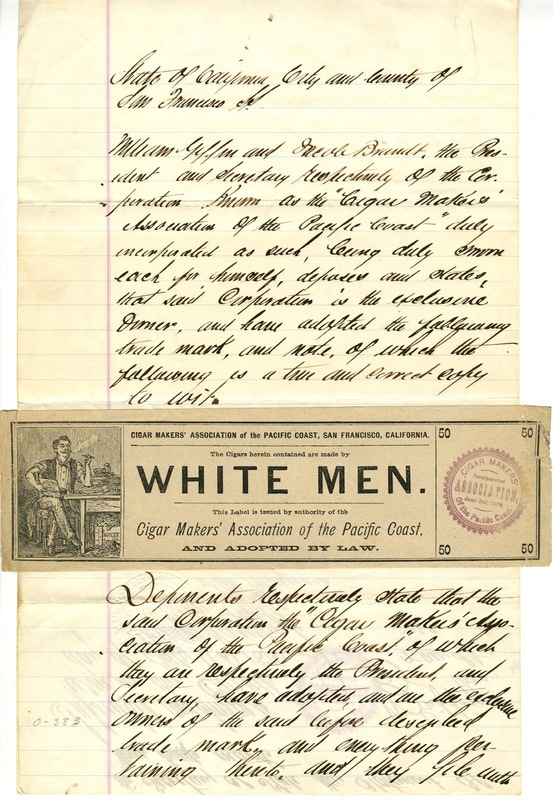 State of California, City and County of
San Francisco ss.
William Giffin and Jacob Brandt, the Pres-
ident and Secretary respectively of the Cor-
poration known as the "Cigar Makers'
Association of the Pacific Coast" duly
incorporated as such, being duly sworn
each for himself, deposes and states,
that said Corporation is the exclusive
Owner, and have adopted the following
trade mark, and note, of which the
following is a true and correct copy
to wit.
CIGAR MAKERS' ASSOCIATION of the PACIFIC COAST, SAN FRANCISCO, CALIFORNIA.
The Cigars herein contained are made by
WHITE MEN.
This Label is issued by authority of the
Cigar Makers' Association of the Pacific Coast,
AND ADOPTED BY LAW.
50 50
50 50
CIGAR MAKERS'
Incorporated
ASSOCIATION,
Of the Pacific Coast.
Deponents respectively state that the
said Corporation the "Cigar Makers' Asso-
ciation of the Pacific Coast", of which
they are respectively the President, and
Secretary, have adopted, and are the exclusive
owners of the said before described
trade mark, and everything per-
taining hereto, and they file with
0-283